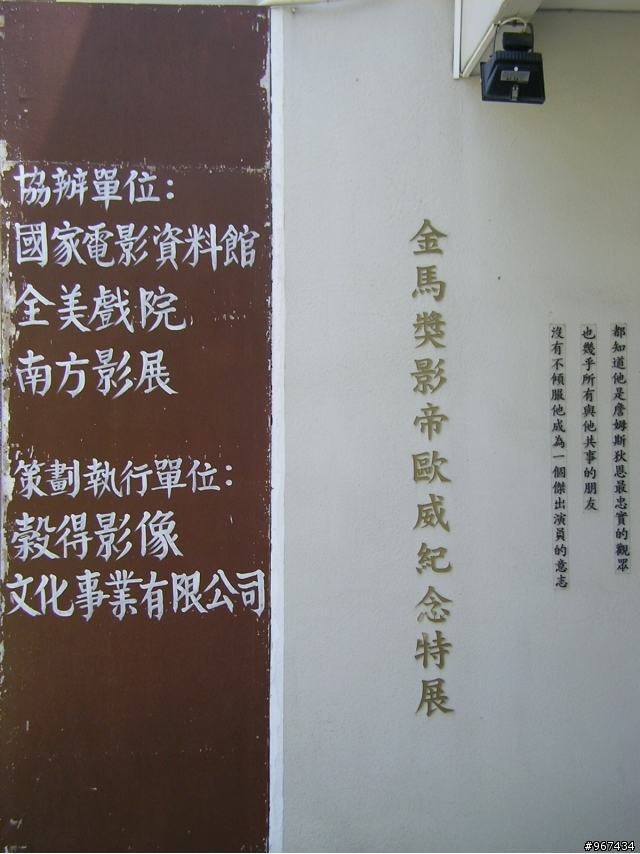 協辦單位：
國家電影資料館
全美戲院
南方影展
策劃執行單位：
穀得影像
文化事業有限公司
金馬獎影帝歐威紀念特展
都知道他是詹姆斯狄恩最忠實的觀眾
也幾乎所有與他共事的朋友
沒有不傾服他成為一個傑出演員的意志
#967434